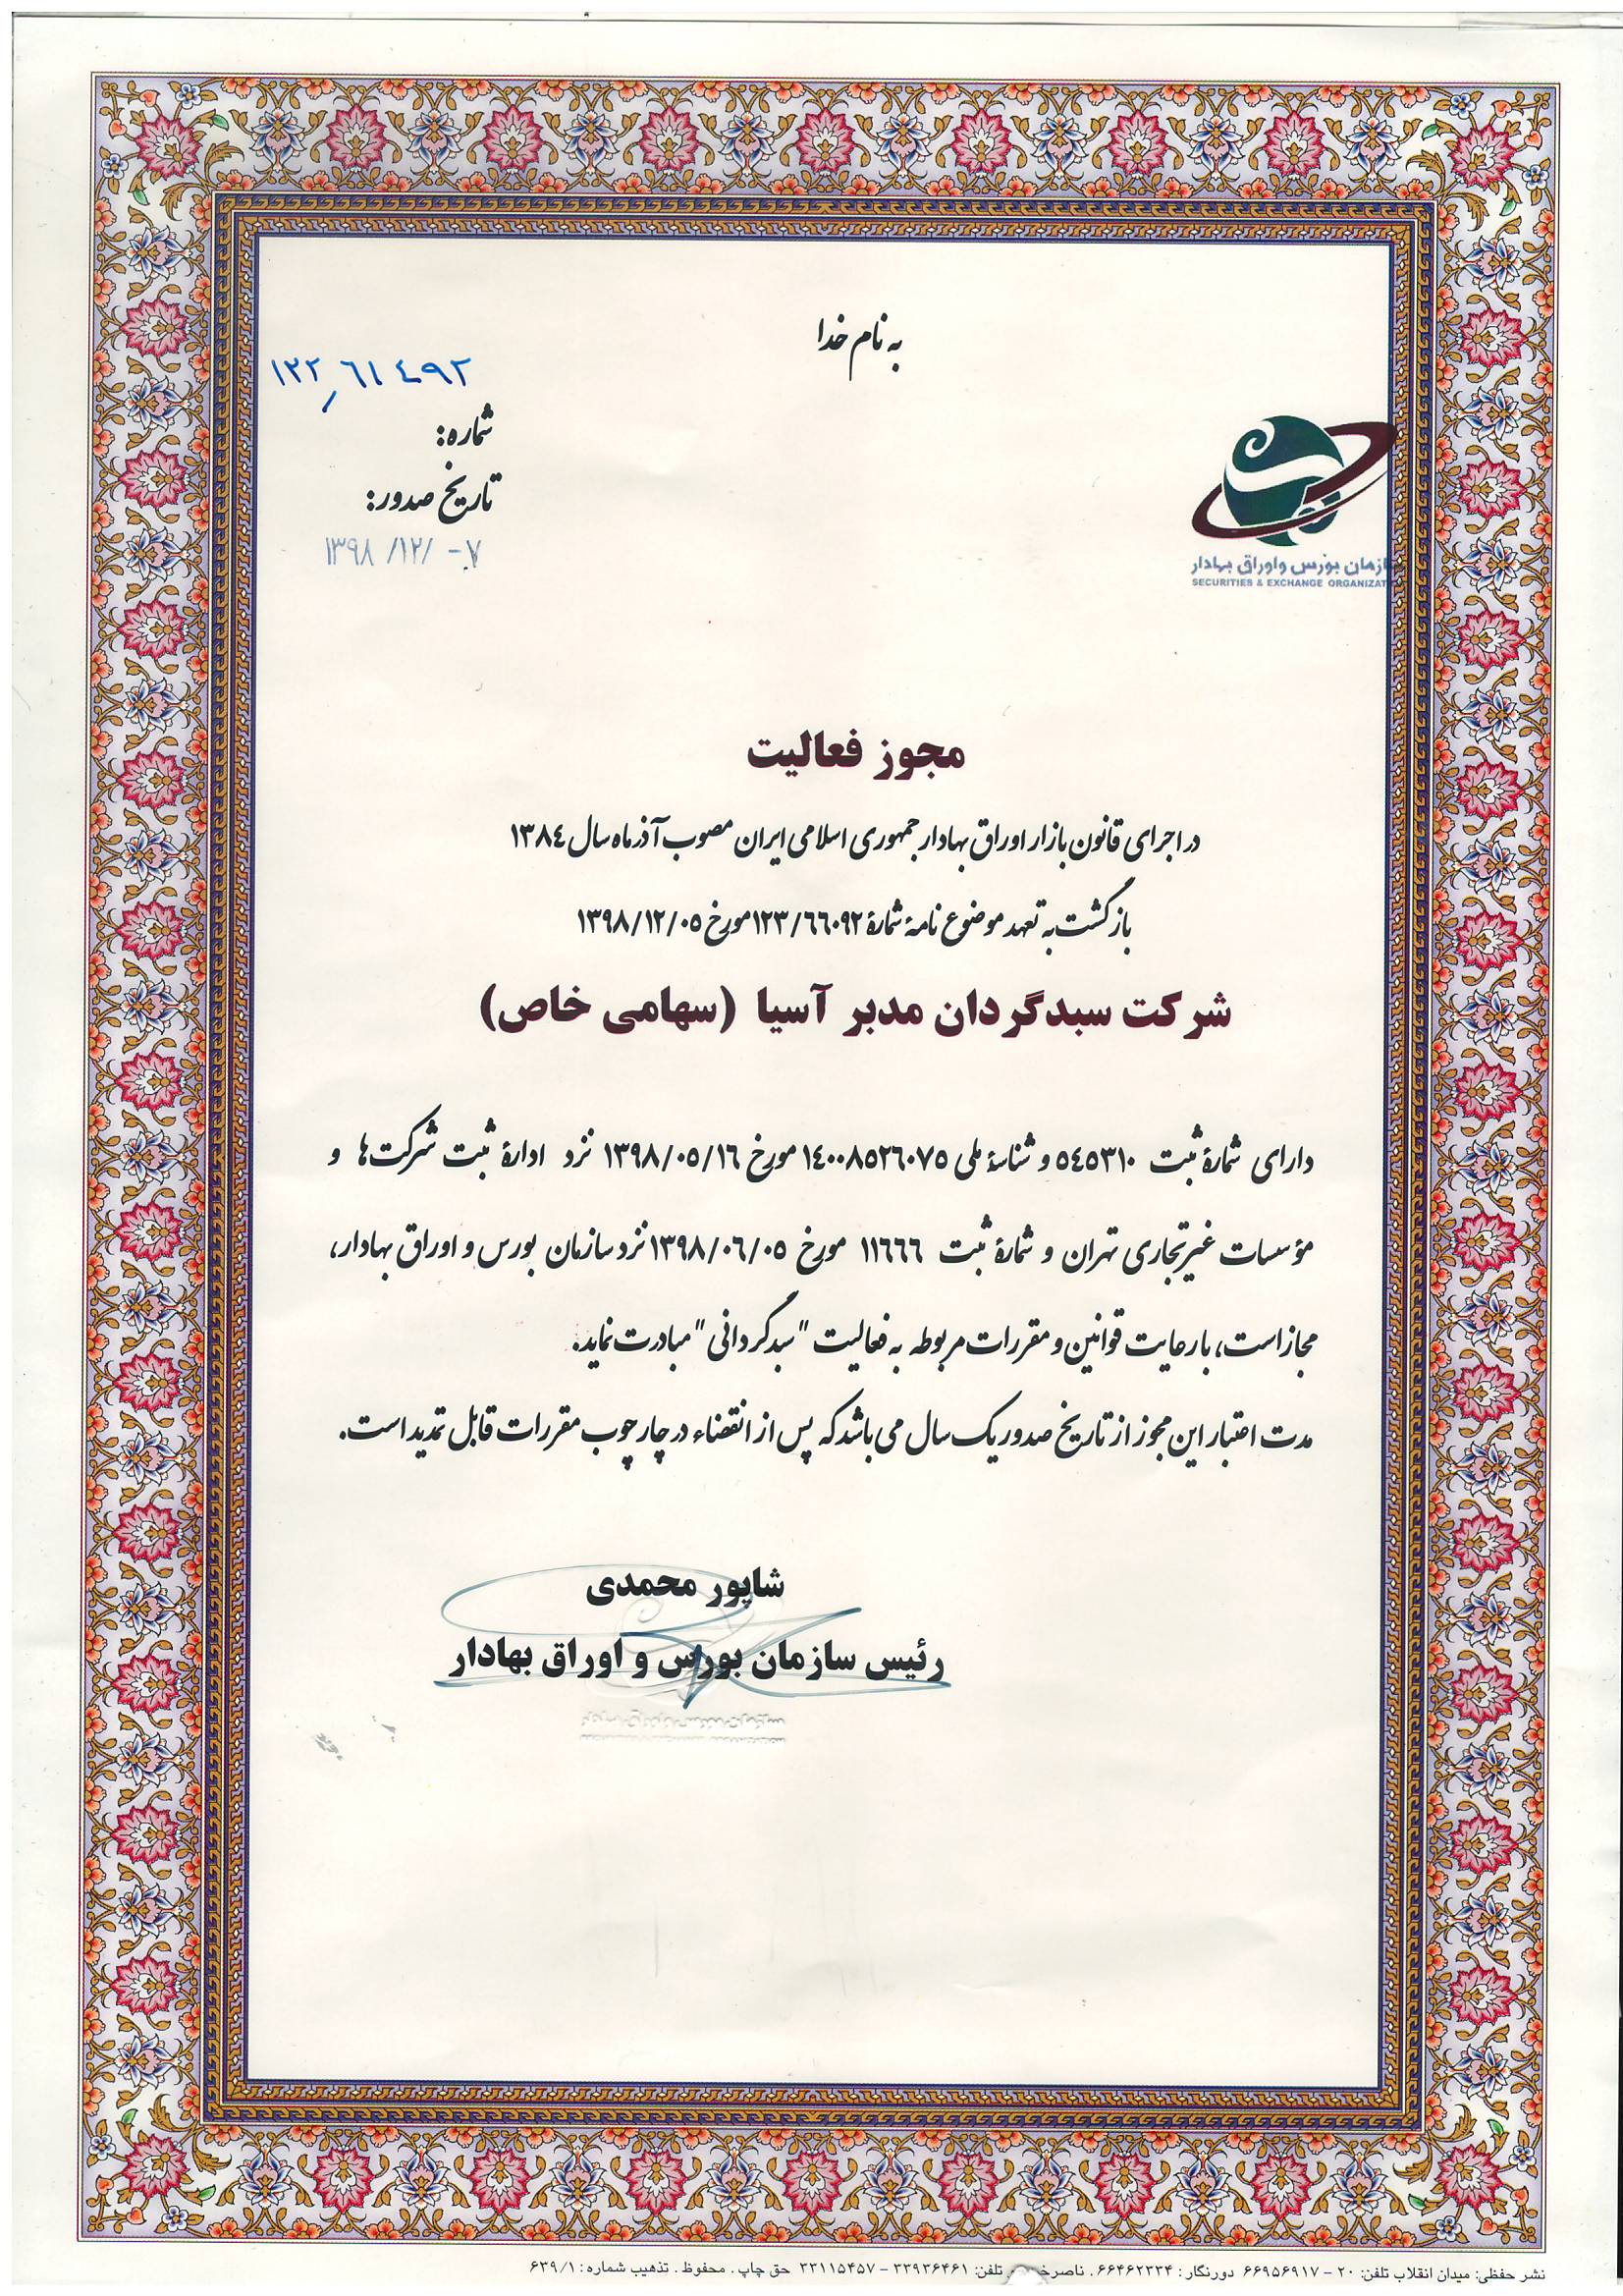 به نام خدا
۱۲۲/۶۱۴۹۲
شماره:
تاریخ صدور:
۱۳۹۸/۱۲/۰۷
سازمان بورس و اوراق بهادار
SECURITIES & EXCHANGE ORGANIZAT
مجوز فعالیت
در اجرای قانون بازار اوراق بهادار جمهوری اسلامی ایران مصوب آذر ماه سال ۱۳۸۴
بازگشت به تعهد موضوع نامهٔ شمارهٔ ۱۲۳/۶۶۰۹۲ مورخ ۱۳۹۸/۱۲/۰۵
شرکت سبدگردان مدبر آسیا (سهامی خاص)
دارای شمارهٔ ثبت ۵۴۵۳۱۰ و شناسهٔ ملی ۱۴۰۰۸۵۲۶۰۷۵ مورخ ۱۳۹۸/۰۵/۱۶ نزد ادارهٔ ثبت شرکت‌ها و
مؤسسات غیرتجاری تهران و شمارهٔ ثبت ۱۱۶۶۶ مورخ ۱۳۹۸/۰۶/۰۵ نزد سازمان بورس و اوراق بهادار،
مجاز است، با رعایت قوانین و مقررات مربوطه به فعالیت "سبدگردانی" مبادرت نماید.
مدت اعتبار این مجوز از تاریخ صدور یک سال می باشد که پس از انقضاء در چارچوب مقررات قابل تمدید است.
شاپور محمدی
رئیس سازمان بورس و اوراق بهادار
نشر حفظی: میدان انقلاب تلفن: ۲۰ - ۶۶۹۵۶۹۱۷ دورنگار: ۶۶۴۶۲۳۳۴ . تلفن: ۳۳۹۳۶۴۶۱ - ۳۳۱۱۵۴۵۷ حق چاپ . محفوظ . تذهیب شماره: ۶۳۹/۱